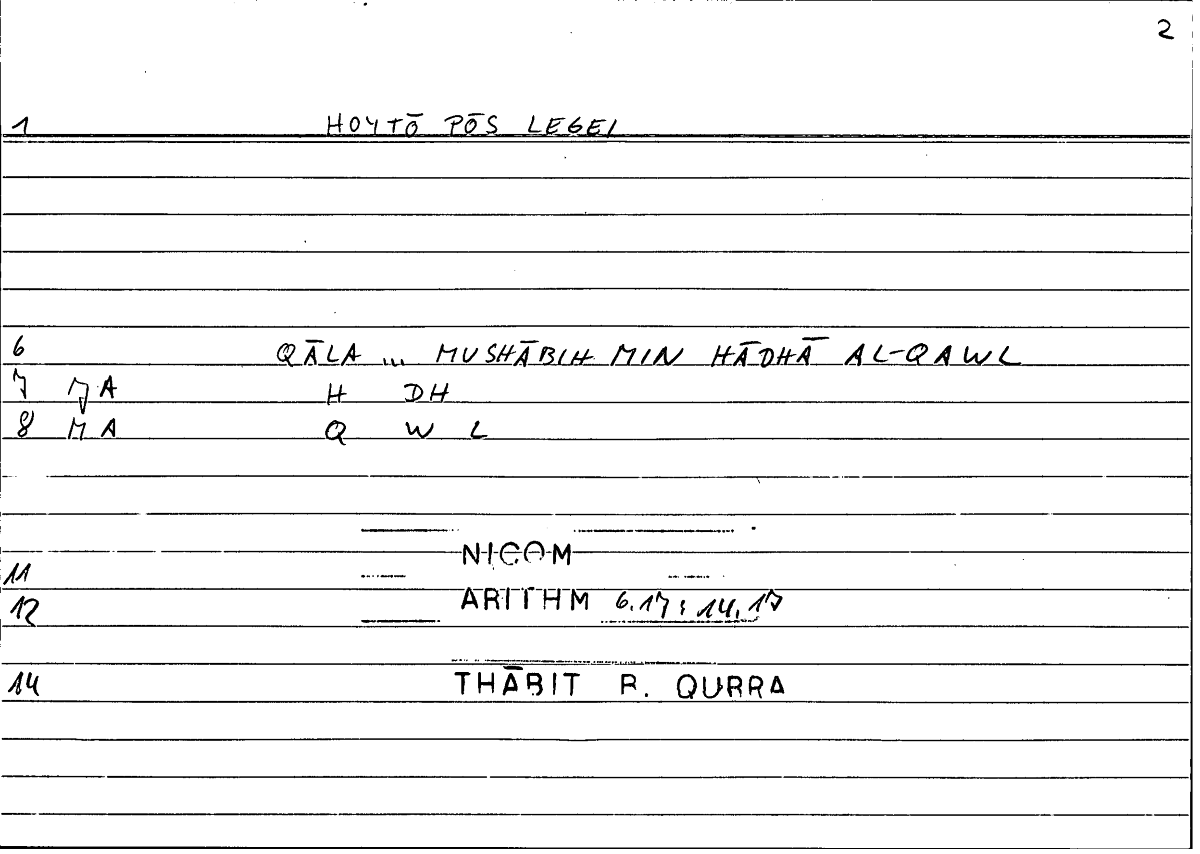 2
1 HOYTŌ PŌS LEGEI
6 QĀLA ... MUSHĀBIH MIN HĀDHĀ AL-QAWL
7 MA H DH
8 MA Q W L
NICOM
11
12 ARITHM 6.17 : 14.17
14 THĀBIT B. QURRA